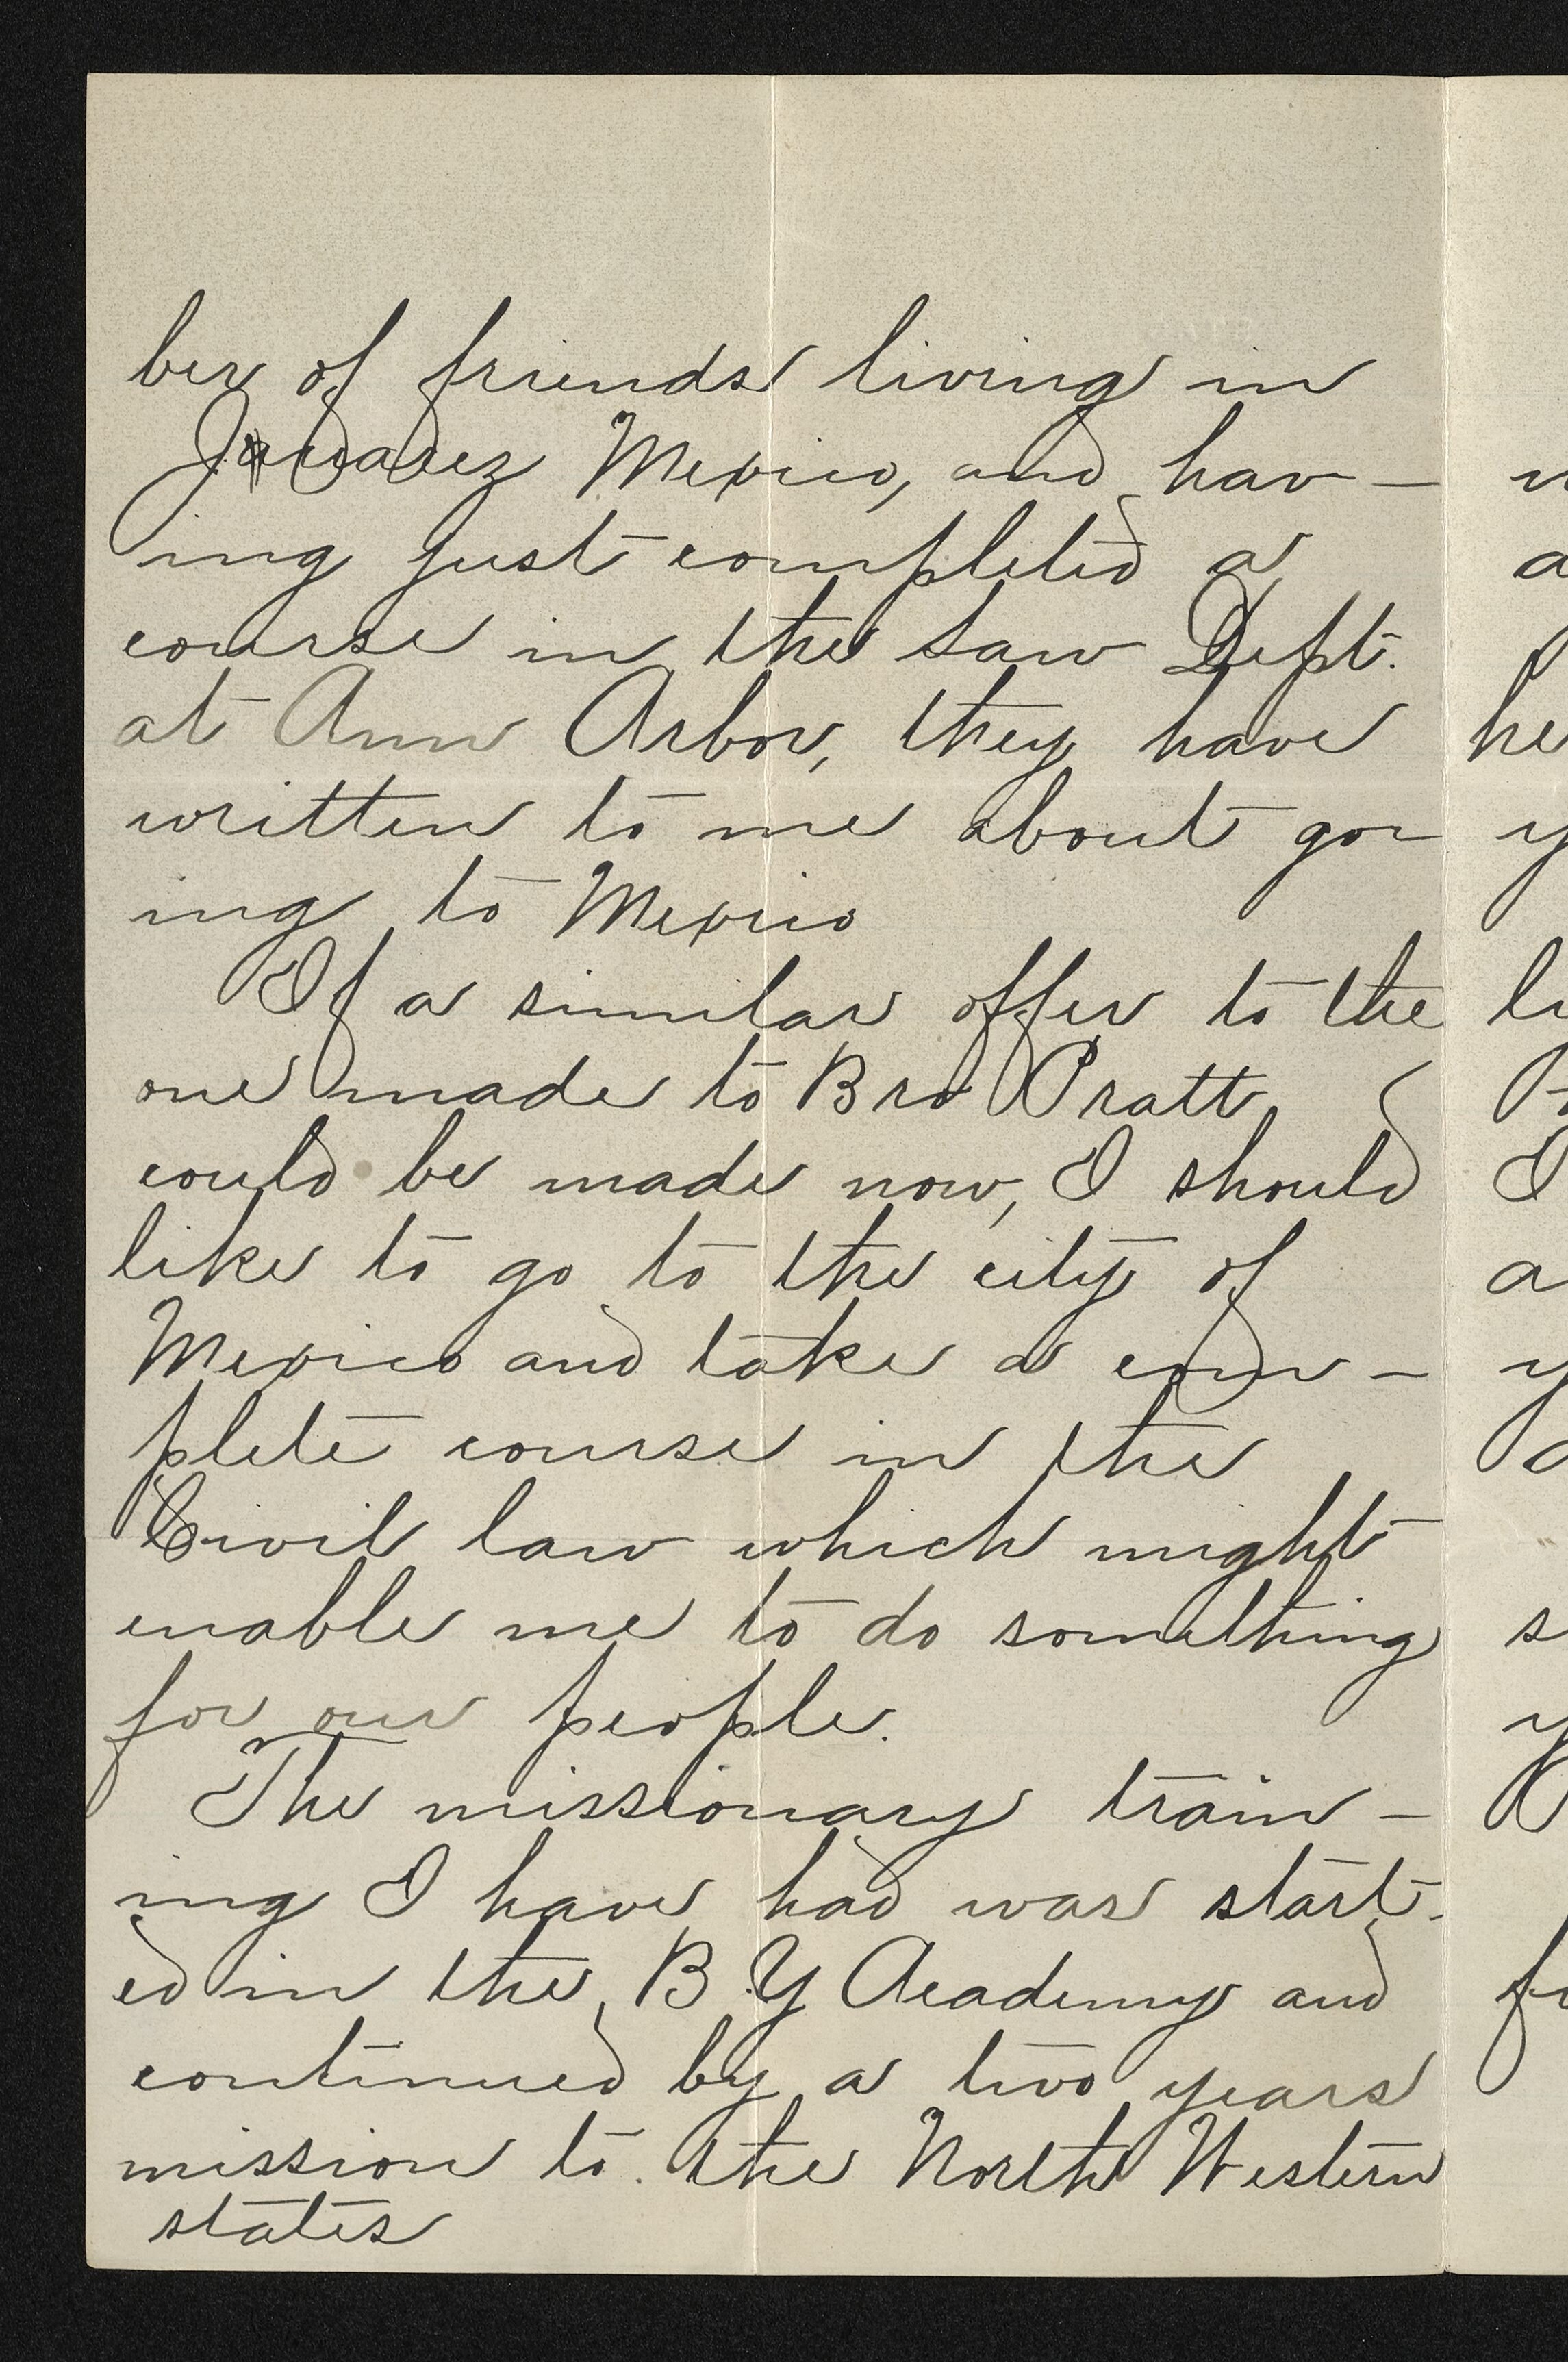 ber of friends living in
Juarez Mexico, and hav-
ing just completed a
course in the Law Dept.
at Ann Arbor, they have
written to me about go-
ing to Mexico
If a similar offer to the
one made to Bro Pratt
could be made now, I should
like to go to the city of
Mexico and take a com-
plete course in the
Civil law which might
enable me to do something
for our people.
The missionary train-
ing I have had was start-
ed in the B.Y Academy and
continued by a two years
mission to the North Western
states